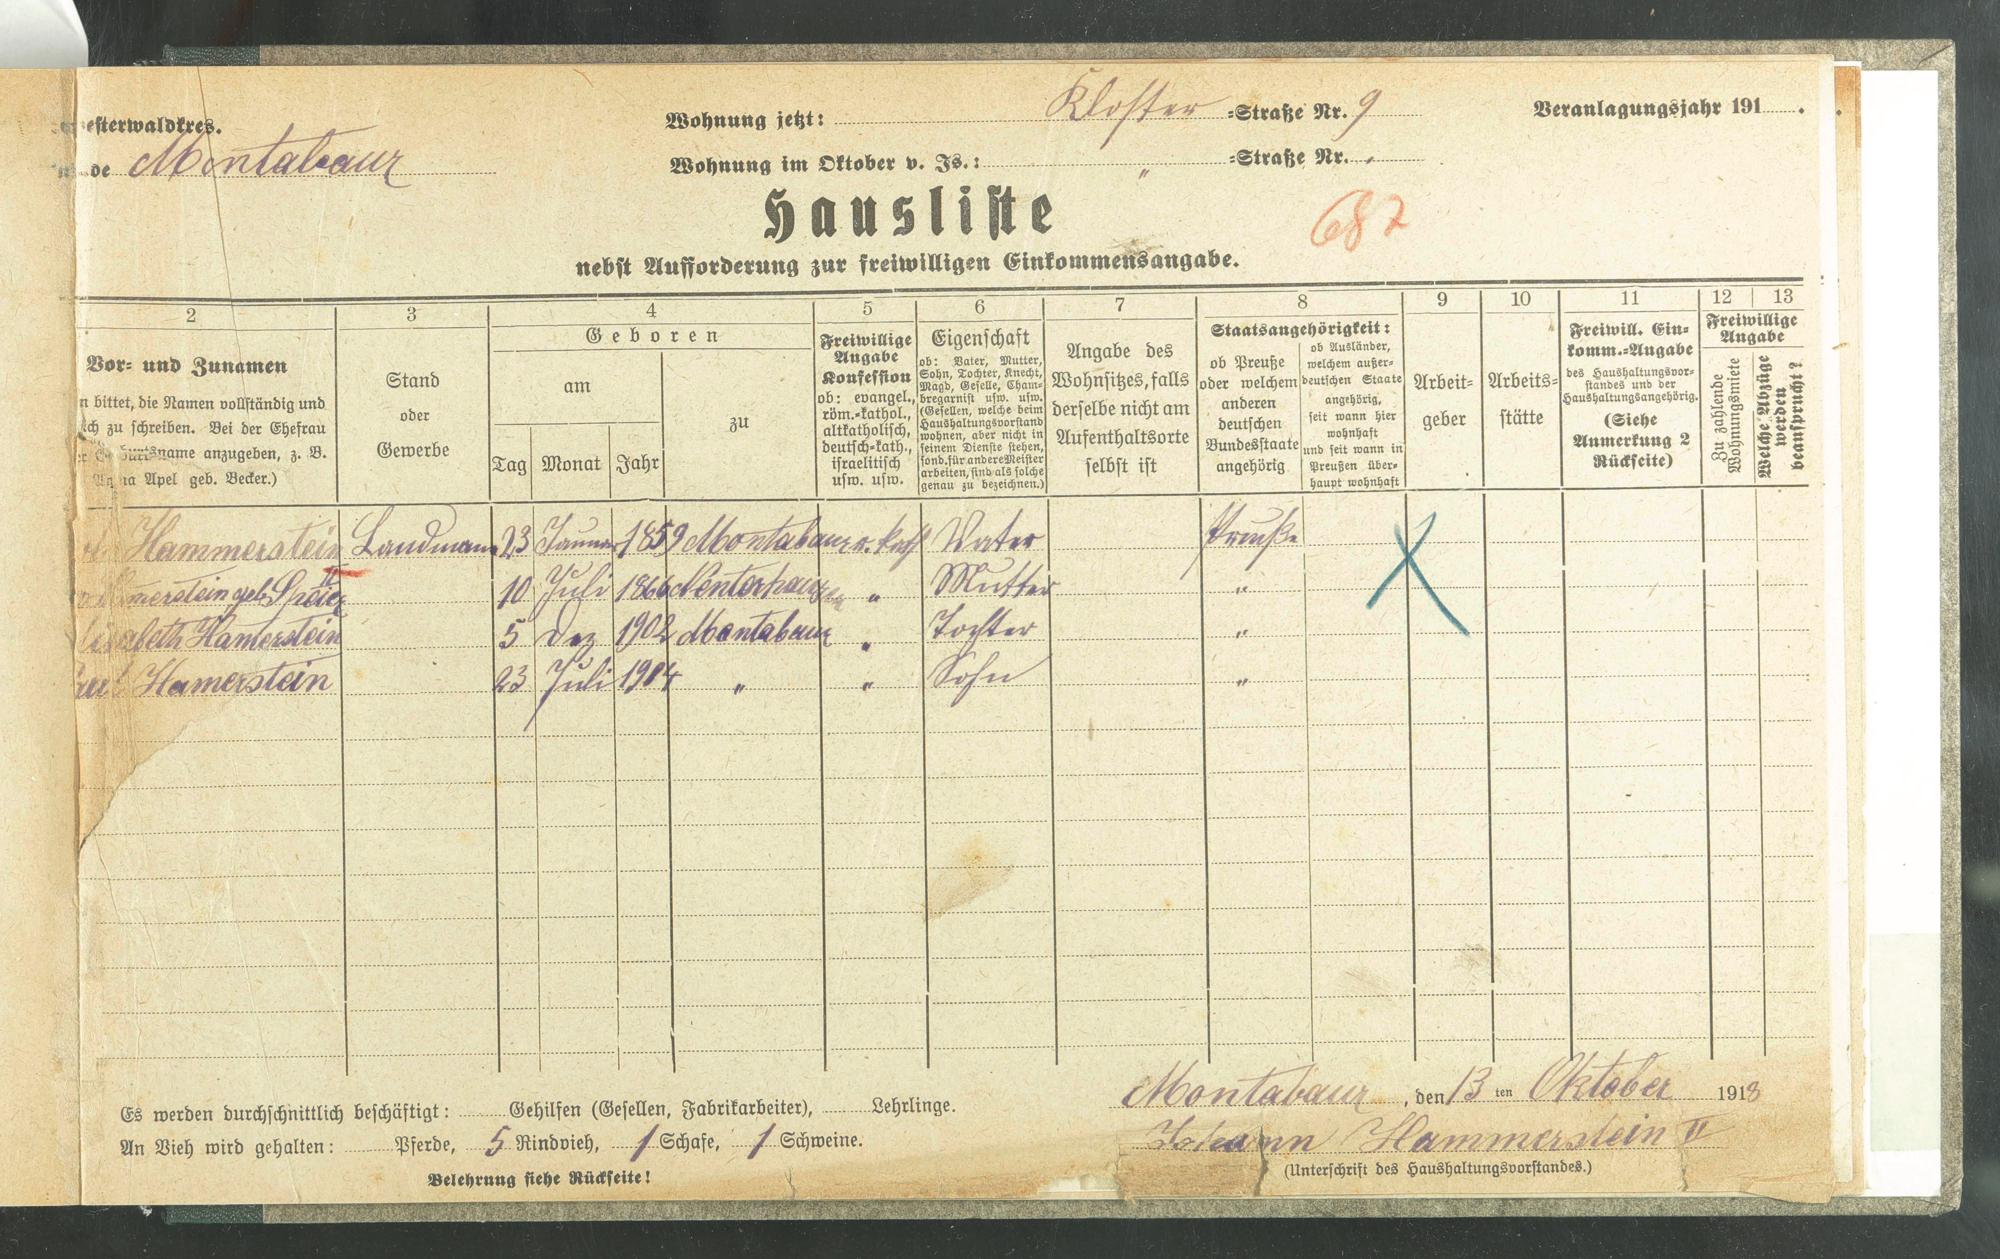 esterwaldkres. Wohnung jetzt: Kloster =Straße Nr. 9 Veranlagungsjahr 191 .
de Montabaur Wohnung im Oktober v. Js.: " =Straße Nr.
Hausliste
687
nebst Aufforderung zur freiwilligen Einkommensangabe.
2 3 4 5 6 7 8 9 10 11 12 13
Vor- und Zunamen
n bittet, die Namen vollständig und
ch zu schreiben. Bei der Ehefrau
burtsname anzugeben, z. B.
na Apel geb. Becker.)
Stand
oder
Gewerbe
Geboren
am
zu
Tag Monat Jahr
Freiwillige
Angabe
Konfession
ob: evangel.,
röm.-kathol.,
altkatholisch,
deutsch-kath.,
israelitisch
usw. usw.
Eigenschaft
ob: Vater, Mutter,
Sohn, Tochter, Knecht,
Magd, Geselle, Cham-
bregarnist usw. usw.
(Gesellen, welche beim
Haushaltungsvorstand
wohnen, aber nicht in
seinem Dienste stehen,
sond. für andere Meister
arbeiten, sind als solche
genau zu bezeichnen.)
Angabe des
Wohnsitzes, falls
derselbe nicht am
Aufenthaltsorte
selbst ist
Staatsangehörigkeit:
ob Preuße
oder welchem
anderen
deutschen
Bundesstaate
angehörig
ob Ausländer,
welchem außer-
deutschen Staate
angehörig,
seit wann hier
wohnhaft
und seit wann in
Preußen über-
haupt wohnhaft
Arbeit-
geber
Arbeits-
stätte
Freiwill. Ein-
komm.-Angabe
des Haushaltungsvor-
standes und der
Haushaltungsangehörig.
(Siehe
Anmerkung 2
Rückseite)
Freiwillige
Angabe
Zu zahlende
Wohnungsmiete
Welche Abzüge
werden
beansprucht?
Hammerstein Landmann 23 Januar 1859 Montabaur r. kath Vater Preuße
II
merstein geb. Speier 10 Juli 1866 Nentershausen " Mutter "
abeth Hamerstein 5 Dez 1902 Montabaur " Tochter "
Hamerstein 23 Juli 1904 " " Sohn "
Montabaur, den 13 ten Oktober 1918
Es werden durchschnittlich beschäftigt: Gehilfen (Gesellen, Fabrikarbeiter), Lehrlinge.
Johann Hammerstein II
An Vieh wird gehalten: Pferde, 5 Rindvieh, 1 Schafe, 1 Schweine.
(Unterschrift des Haushaltungsvorstandes.)
Belehrung siehe Rückseite!